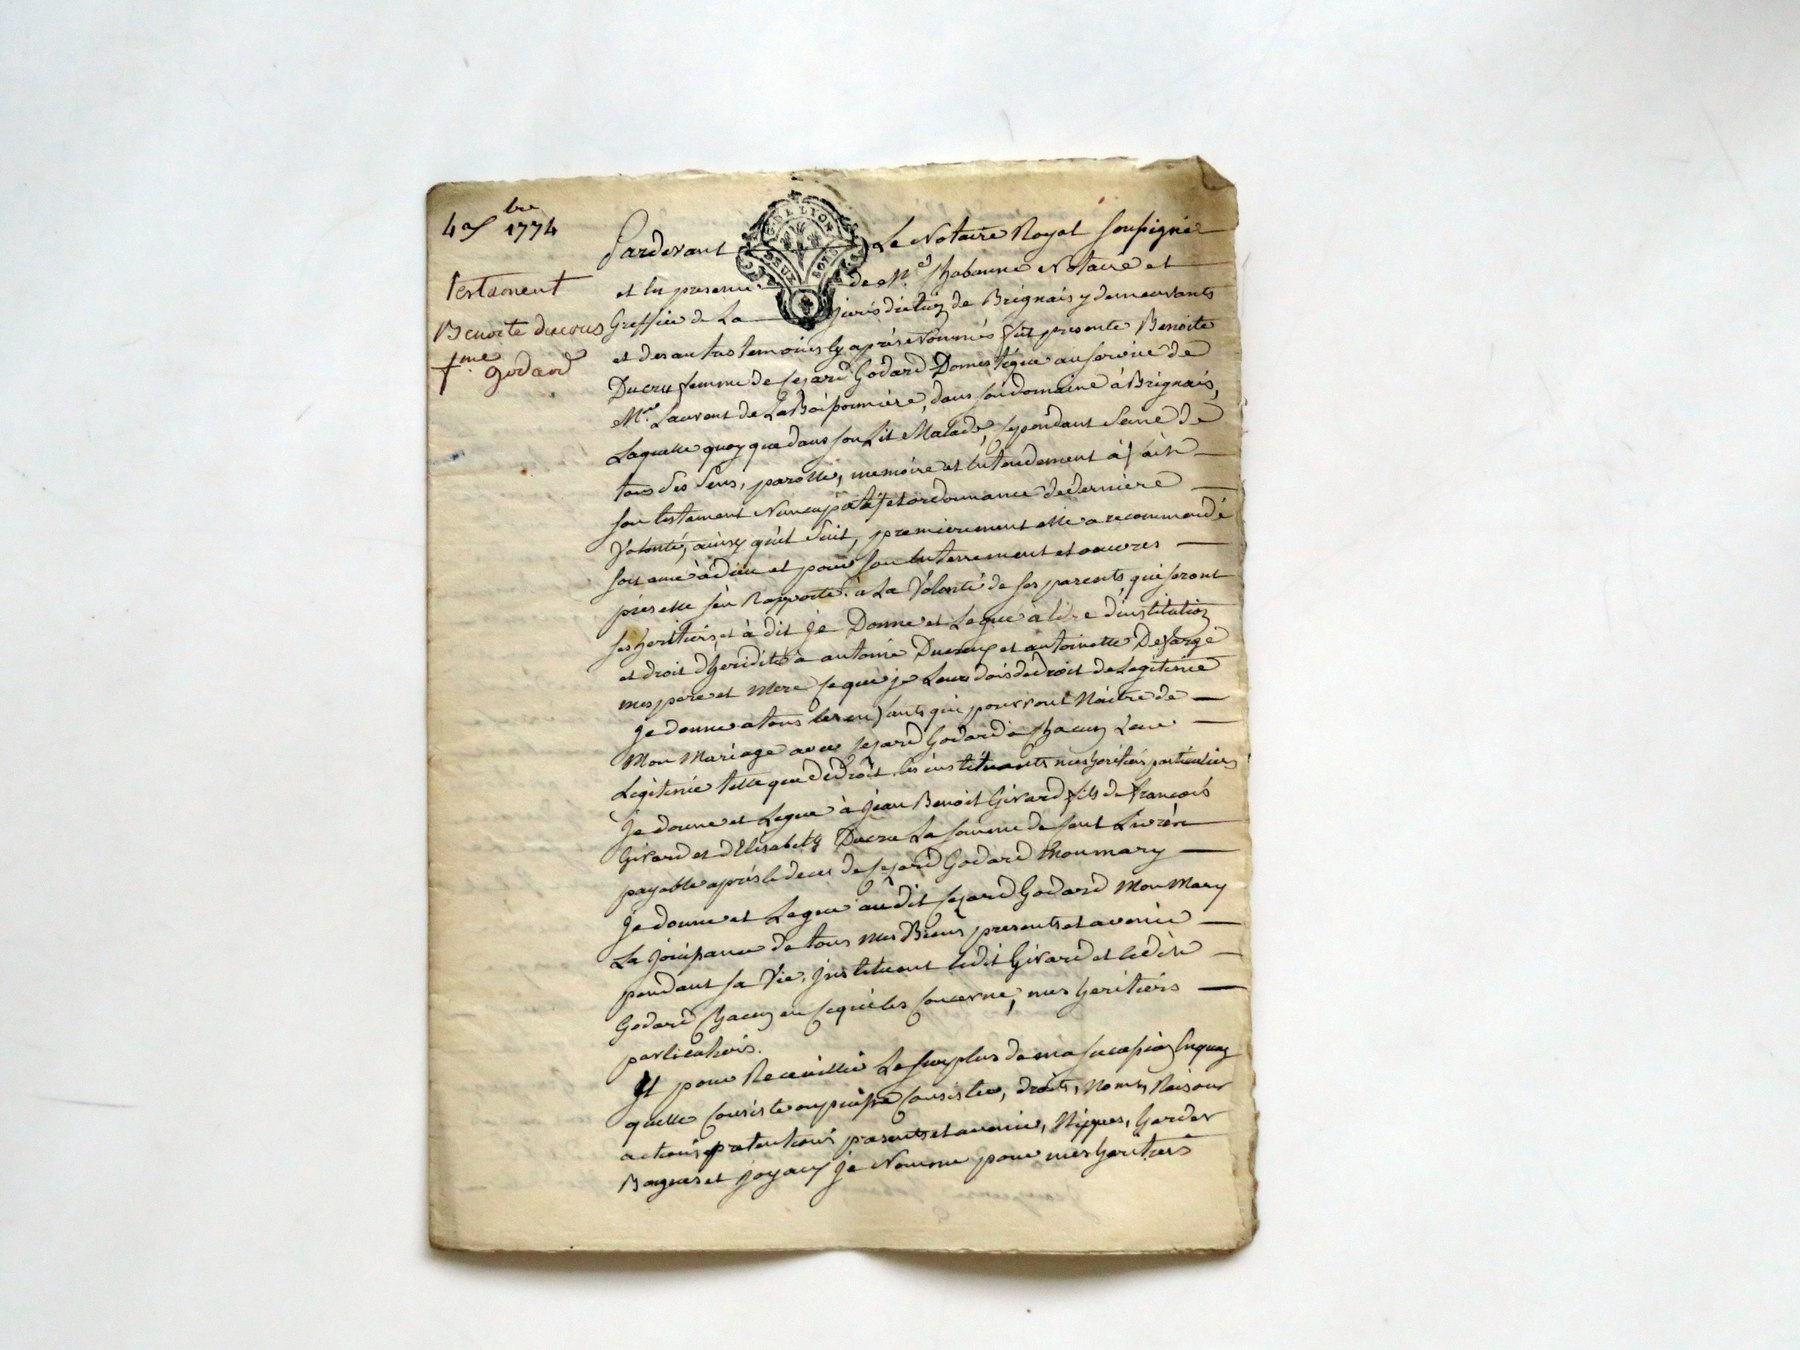 4 bre 1774
Testament
Benoite ducrus
fme godard
G. DE LYON
DEUX SOLS
Pardevant Le Notaire Royal soussigné
et en presence de Me Chabanne Notaire et
Greffier de La jurisdiction de Brignais y demeurants
et des autres temoins cy après nommés fut presente Benoite
Ducru femme de Cezard Godard Domestique au service de
Mr Laurent de La Boissonniere, dans son domaine à Brignais,
Laquelle quoyque dans son Lit Malade, cependant Seine de
tous Ses Sens, parolle, memoire et Entendement à fait
son testament Nuncupatif et ordonnance de derniere
Volonté, ainsy qu'il Suit, premierement elle a recommandé
son ame à dieu et pour son Enterrement et oeuvres
pies elle s'en Rapporte à La Volonté de ses parents qui seront
ses heritiers et à dit je Donne et Legue à titre d'institution
et droit d'heridité à antoine Ducreux et antoinette Defarge
mes pere et Mere ce que je Leurs dois de droit de Legitime
je donne a tous les enfants qui pourront Naitre de
Mon Mariage avec Cezard Godard a chacun Leur
Legitime telle que de droit les instituants mes heritiers particuliers
je donne et Legue à jean Benoit Girard fils de francois
Girard et d'Elisabeth Ducru La somme de cent Livres
payable après le deces de Cezard Godard Mon mary
je donne et Legue audit Cezard Godard Mon Mary
La jouissance de tous mes Biens presents et avenir
pendant sa Vie, jnstituant ledit Girard et ledit
Godard chacun en ce qui les concerne, mes heritiers
particuliers.
Et pour Recueillir Le surplus de ma succession Enquoy
quelle consiste ou puisse consister, droits, Noms, Raisons
actions pretentions presents et avenir, Nippes, hardes
Bagues et joyaux je Nomme pour mes heritiers